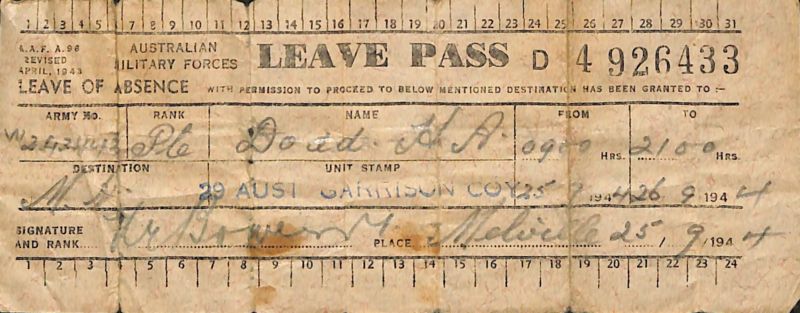 1 2 3 4 5 6 7 8 9 10 11 12 13 14 15 16 17 18 19 20 21 22 23 24 25 26 27 28 29 30 31
A.A.F. A.96
REVISED
APRIL, 1943
AUSTRALIAN
MILITARY FORCES
LEAVE PASS D 4 926433
LEAVE OF ABSENCE WITH PERMISSION TO PROCEED TO BELOW MENTIONED DESTINATION HAS BEEN GRANTED TO :—
ARMY No. RANK NAME FROM TO
Pte Dodd. H. A. 0900 HRS. 2100 HRS.
DESTINATION UNIT STAMP
29 AUST GARRISON COY 25 9 1944 26 9 1944
SIGNATURE
AND RANK PLACE Melville 25 / 9 / 1944
1 2 3 4 5 6 7 8 9 10 11 12 13 14 15 16 17 18 19 20 21 22 23 24